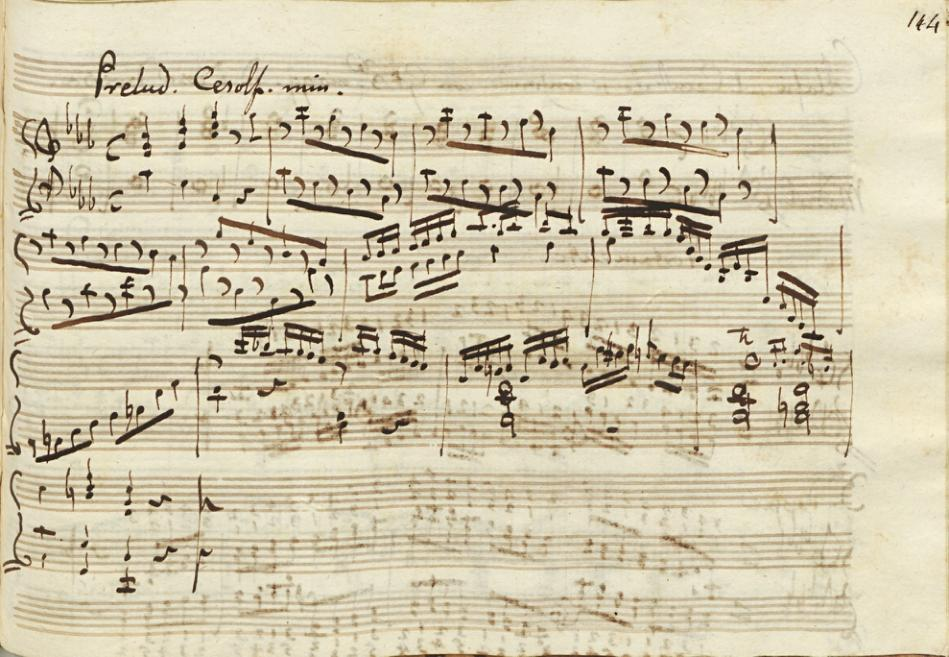 144
Prelud. Cesolf. min.